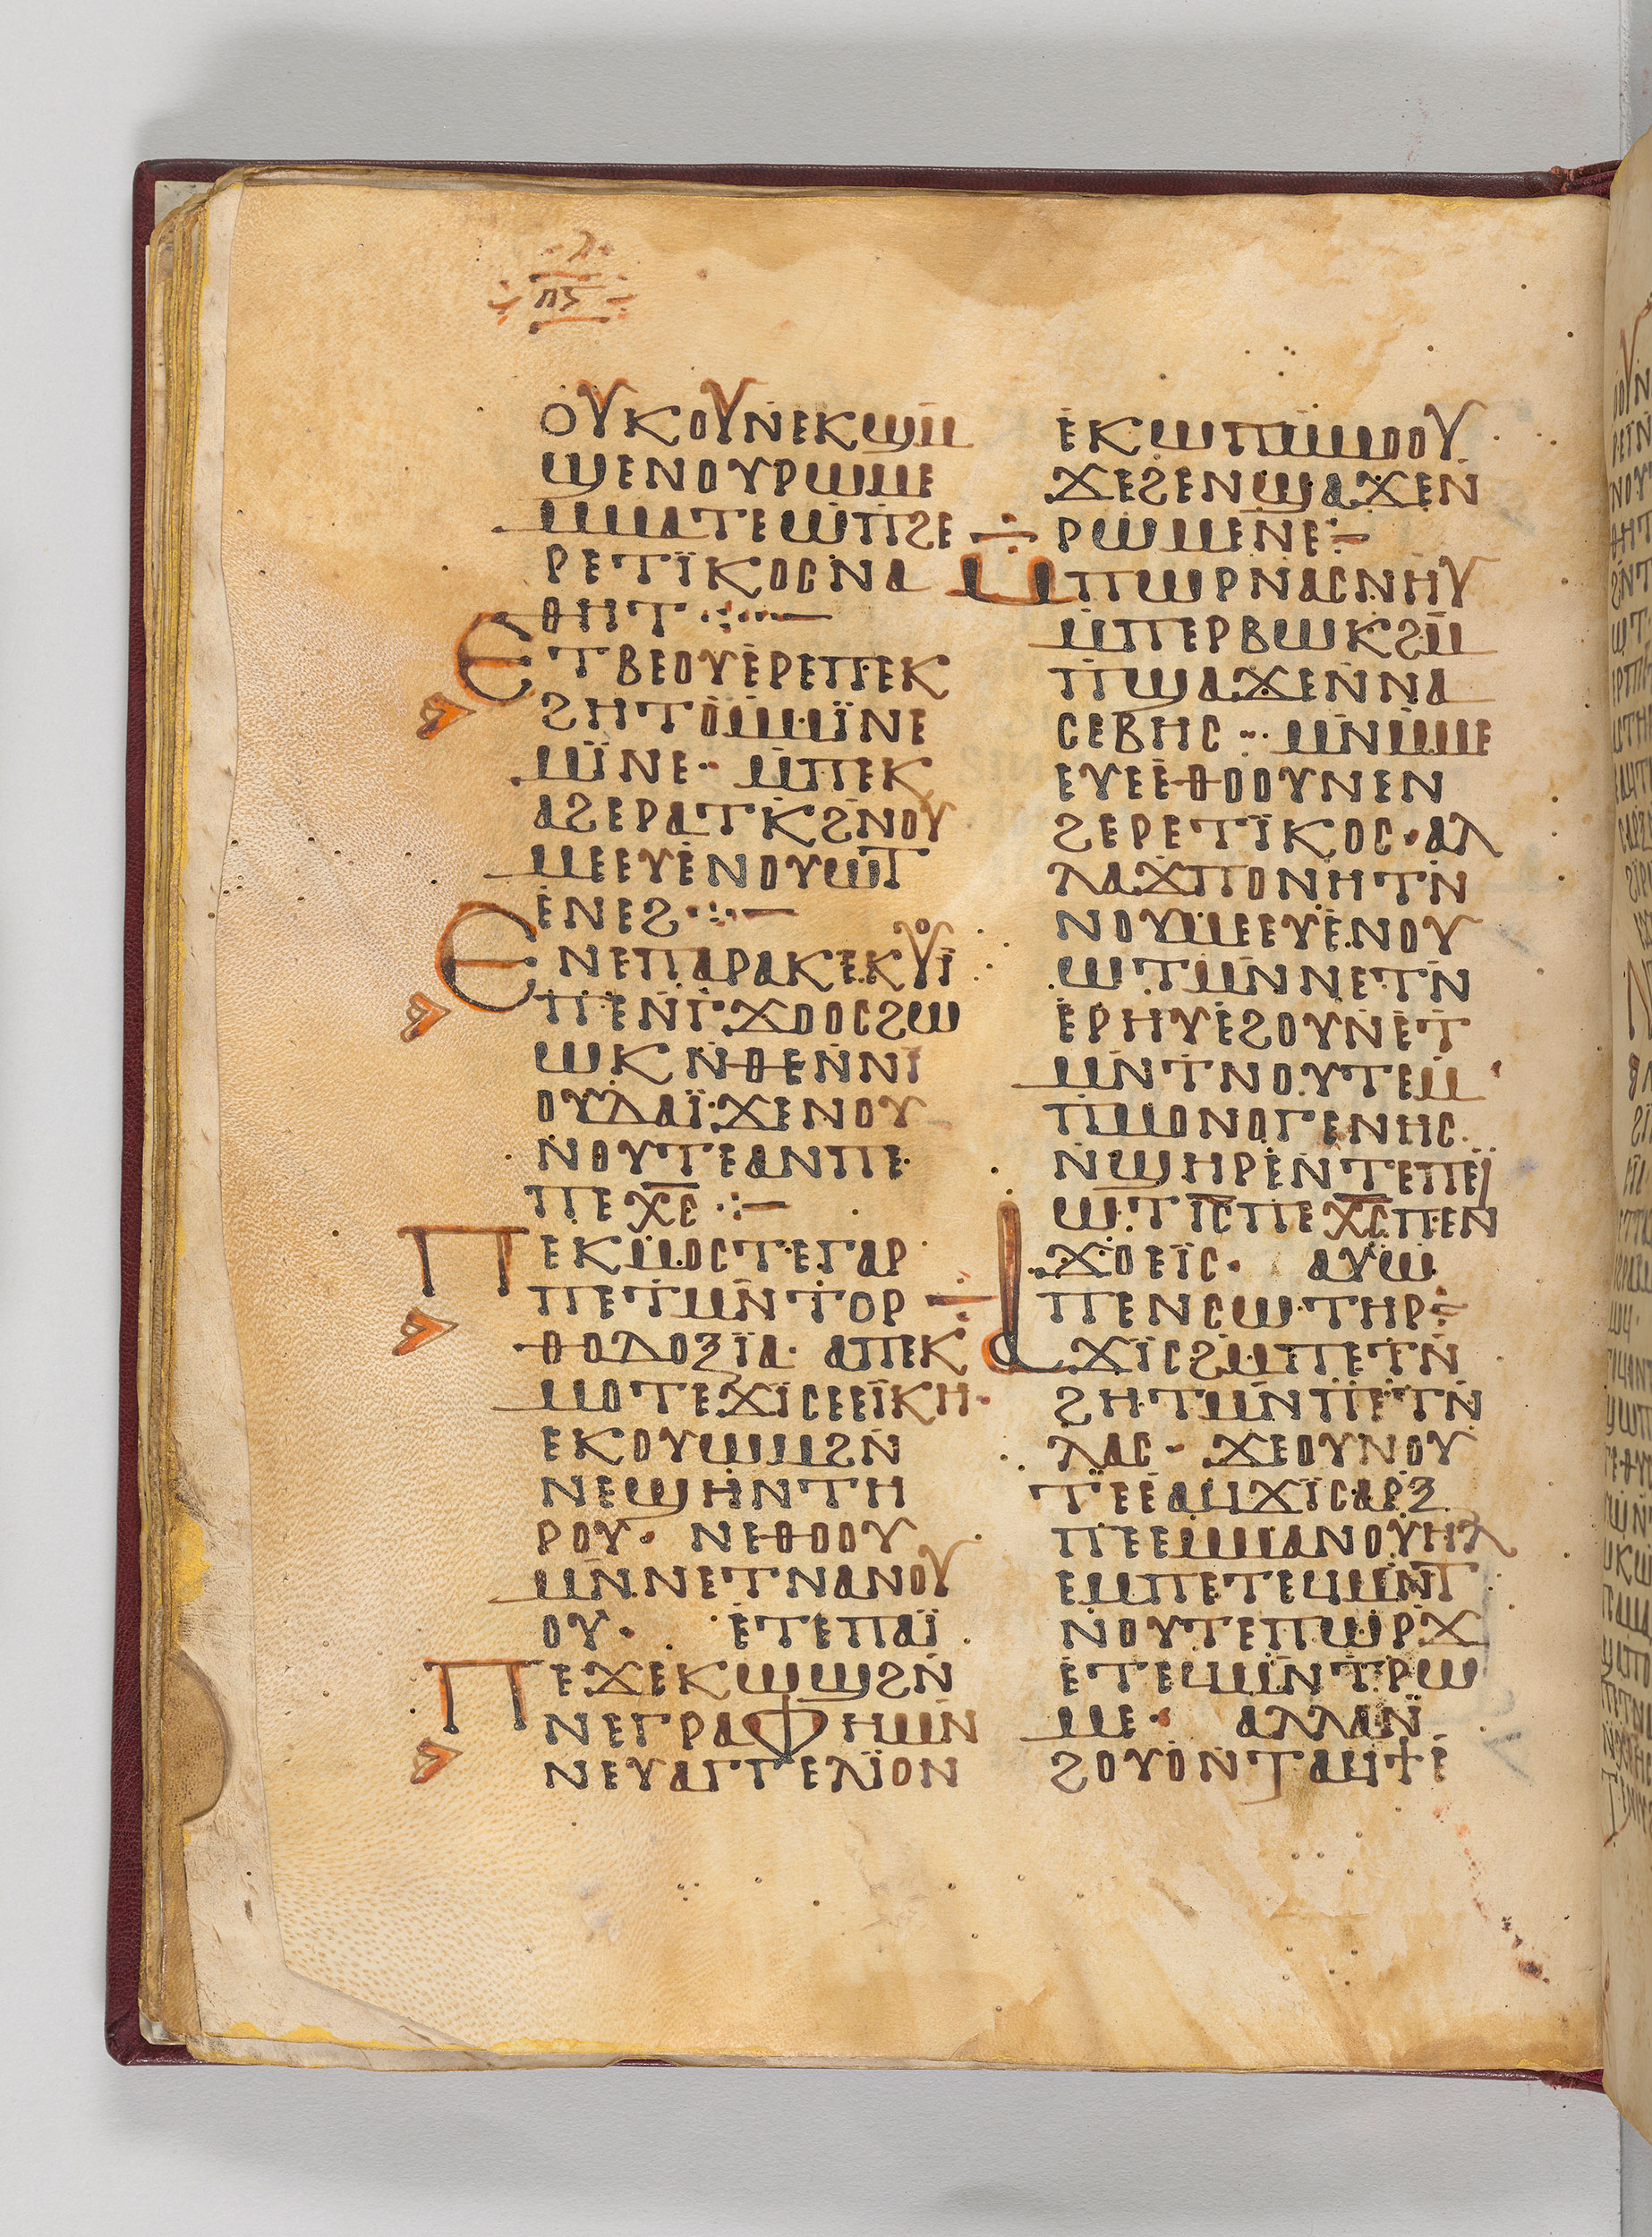 ⲡⲋ
ⲟⲩⲕⲟⲩⲛⲉⲕϣⲙ̄
ϣⲉⲛⲟⲩⲣⲱⲙⲉ
ⲙⲙⲁⲧⲉⲱ̇ⲡϩⲉ
ⲣⲉⲧⲓ̈ⲕⲟⲥⲛⲁ
ⲑⲏⲧ ·:·—
Ⲉⲧⲃⲉⲟⲩⲉ̇ⲣⲉⲡⲉⲕ
ϩⲏⲧⲟ̇ⲙ̇ⲙⲓ̈ⲛⲉ
ⲙⲓ̈ⲛⲉ· ⲙ̇ⲡⲉⲕ
ⲁϩⲉⲣⲁⲧⲕ̇ϩⲛ̇ⲟⲩ
ⲙⲉⲉⲩⲉ̇ⲛⲟⲩⲱⲧ
ⲉ̇ⲛⲉϩ ·:·—
Ⲉⲛⲉⲡⲁⲣⲁⲕⲉⲕⲟⲩⲓ̈
ⲡⲉⲛ̇ⲅϫⲟⲟⲥϩⲱ
ⲱⲕ ⲛ̇ⲑⲉⲛ̇ⲛⲓ
ⲟⲩⲇⲁⲓ̈·ϫⲉⲛⲟⲩ
ⲛⲟⲩⲧⲉⲁⲛⲡⲉ
ⲡⲉⲭ̅ⲥ̅ ·:—
Ⲡⲉⲕⲙⲟⲥⲧⲉⲅⲁⲣ
ⲡⲉⲧⲙ̄ⲛ̇ⲧⲟⲣ
ⲑⲟⲇⲟⲝⲓ̈ⲁ· ⲁⲡⲉⲕ
ⲙⲟⲧⲉϫⲓⲥⲉⲉⲓ̈ⲕⲏ·
ⲉⲕⲟⲩⲱⲙϩⲛ̇
ⲛⲉϣⲏ̇ⲛⲧⲏ
ⲣⲟⲩ· ⲛⲉⲑⲟⲟⲩ
ⲙⲛ̇ⲛⲉⲧⲛⲁⲛⲟⲩ
ⲟⲩ· ⲉ̇ⲧⲉⲡⲁⲓ̈
Ⲡⲉϫⲉⲕⲱϣϩⲛ̇
ⲛⲉⲅⲣⲁⲫⲏⲙⲛ̇
ⲛⲉⲩⲁⲅⲅⲉⲗⲓ̈ⲟⲛ
ⲉ̇ⲕⲱⲡⲙ̇ⲙⲟⲟⲩ
ϫⲉϩⲉⲛϣⲁϫⲉⲛ̇
ⲣⲱⲙⲉⲛⲉ:—
Ⲙⲡⲱⲣⲛⲁⲥⲛⲏⲩ
ⲙ̇ⲡⲉⲣⲃⲱⲕϩⲙ̄
ⲡϣⲁϫⲉⲛ̇ⲛⲁ
ⲥⲉⲃⲏⲥ ·· ⲙⲛ̇ⲙ̇ⲙⲉ
ⲉⲩⲉⲉ̇ⲑⲟⲟⲩⲛⲉⲛ
ϩⲉⲣⲉⲧⲓ̈ⲕⲟⲥ·ⲁⲗ
ⲗⲁϫⲡⲟⲛⲏⲧⲛ̇
ⲛⲟⲩⲙⲉⲉⲩⲉ̇ⲛⲟⲩ
ⲱⲧⲙⲛ̇ⲛⲉⲧⲛ̇
ⲉ̇ⲣⲏⲩⲉ̇ϩⲟⲩⲛⲉ̇ⲧ
ⲙⲛ̇ⲧⲛⲟⲩⲧⲉⲙ̄
ⲡⲙⲟⲛⲟⲅⲉⲛⲏⲥ
ⲛ̇ϣⲏⲣⲉⲛ̇ⲧⲉⲡⲉⲓ̈
ⲱⲧⲓ̅ⲥ̅ⲡⲉⲭ̅ⲥ̅ⲡⲉⲛ
ϫⲟⲉⲓ̈ⲥ· ⲁⲩⲱ
ⲡⲉⲛⲥⲱⲧⲏⲣ:
Ⲁϫⲓⲥϩⲙ̇ⲡⲉⲧⲛ̇
ϩⲏⲧⲙⲛ̇ⲡⲉⲧⲛ̇
ⲗⲁⲥ· ϫⲉⲟⲩⲛⲟⲩ
ⲧⲉⲉ̇ⲁϥϫⲓ̈ⲥⲁⲣⲝ
ⲡⲉⲉⲙⲙⲁⲛⲟⲩⲏⲗ
ⲉⲙⲡⲉⲧⲉϥⲙⲛ̇ⲧ
ⲛⲟⲩⲧⲉⲡⲱⲣϫ
ⲉ̇ⲧⲉϥⲙⲛ̇ⲧⲣⲱ
ⲙⲉ· ⲁⲗⲗⲁⲛ̇
ϩⲟⲩⲟ̇ⲛⲧⲁϥϯⲉ̇